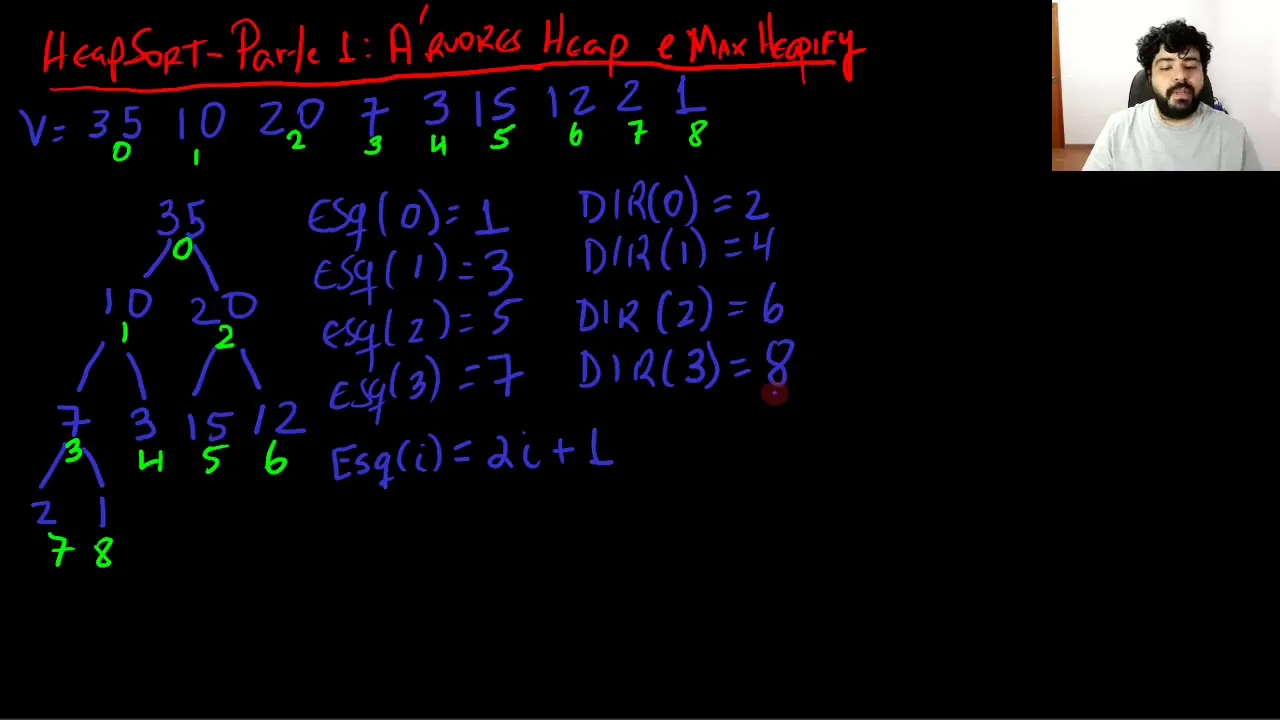 HeapSort - Parte 1: Árvores Heap e Max Heapify
V= 35 10 20 7 3 15 12 2 1
0 1 2 3 4 5 6 7 8
35
0
10 20
1 2
7 3 15 12
3 4 5 6
2 1
7 8
Esq(0)= 1 DIR(0) = 2
Esq(1) = 3 DIR(1) = 4
esq(2) = 5 DIR(2) = 6
esq(3) = 7 DIR(3) = 8
Esq(i) = 2i + 1